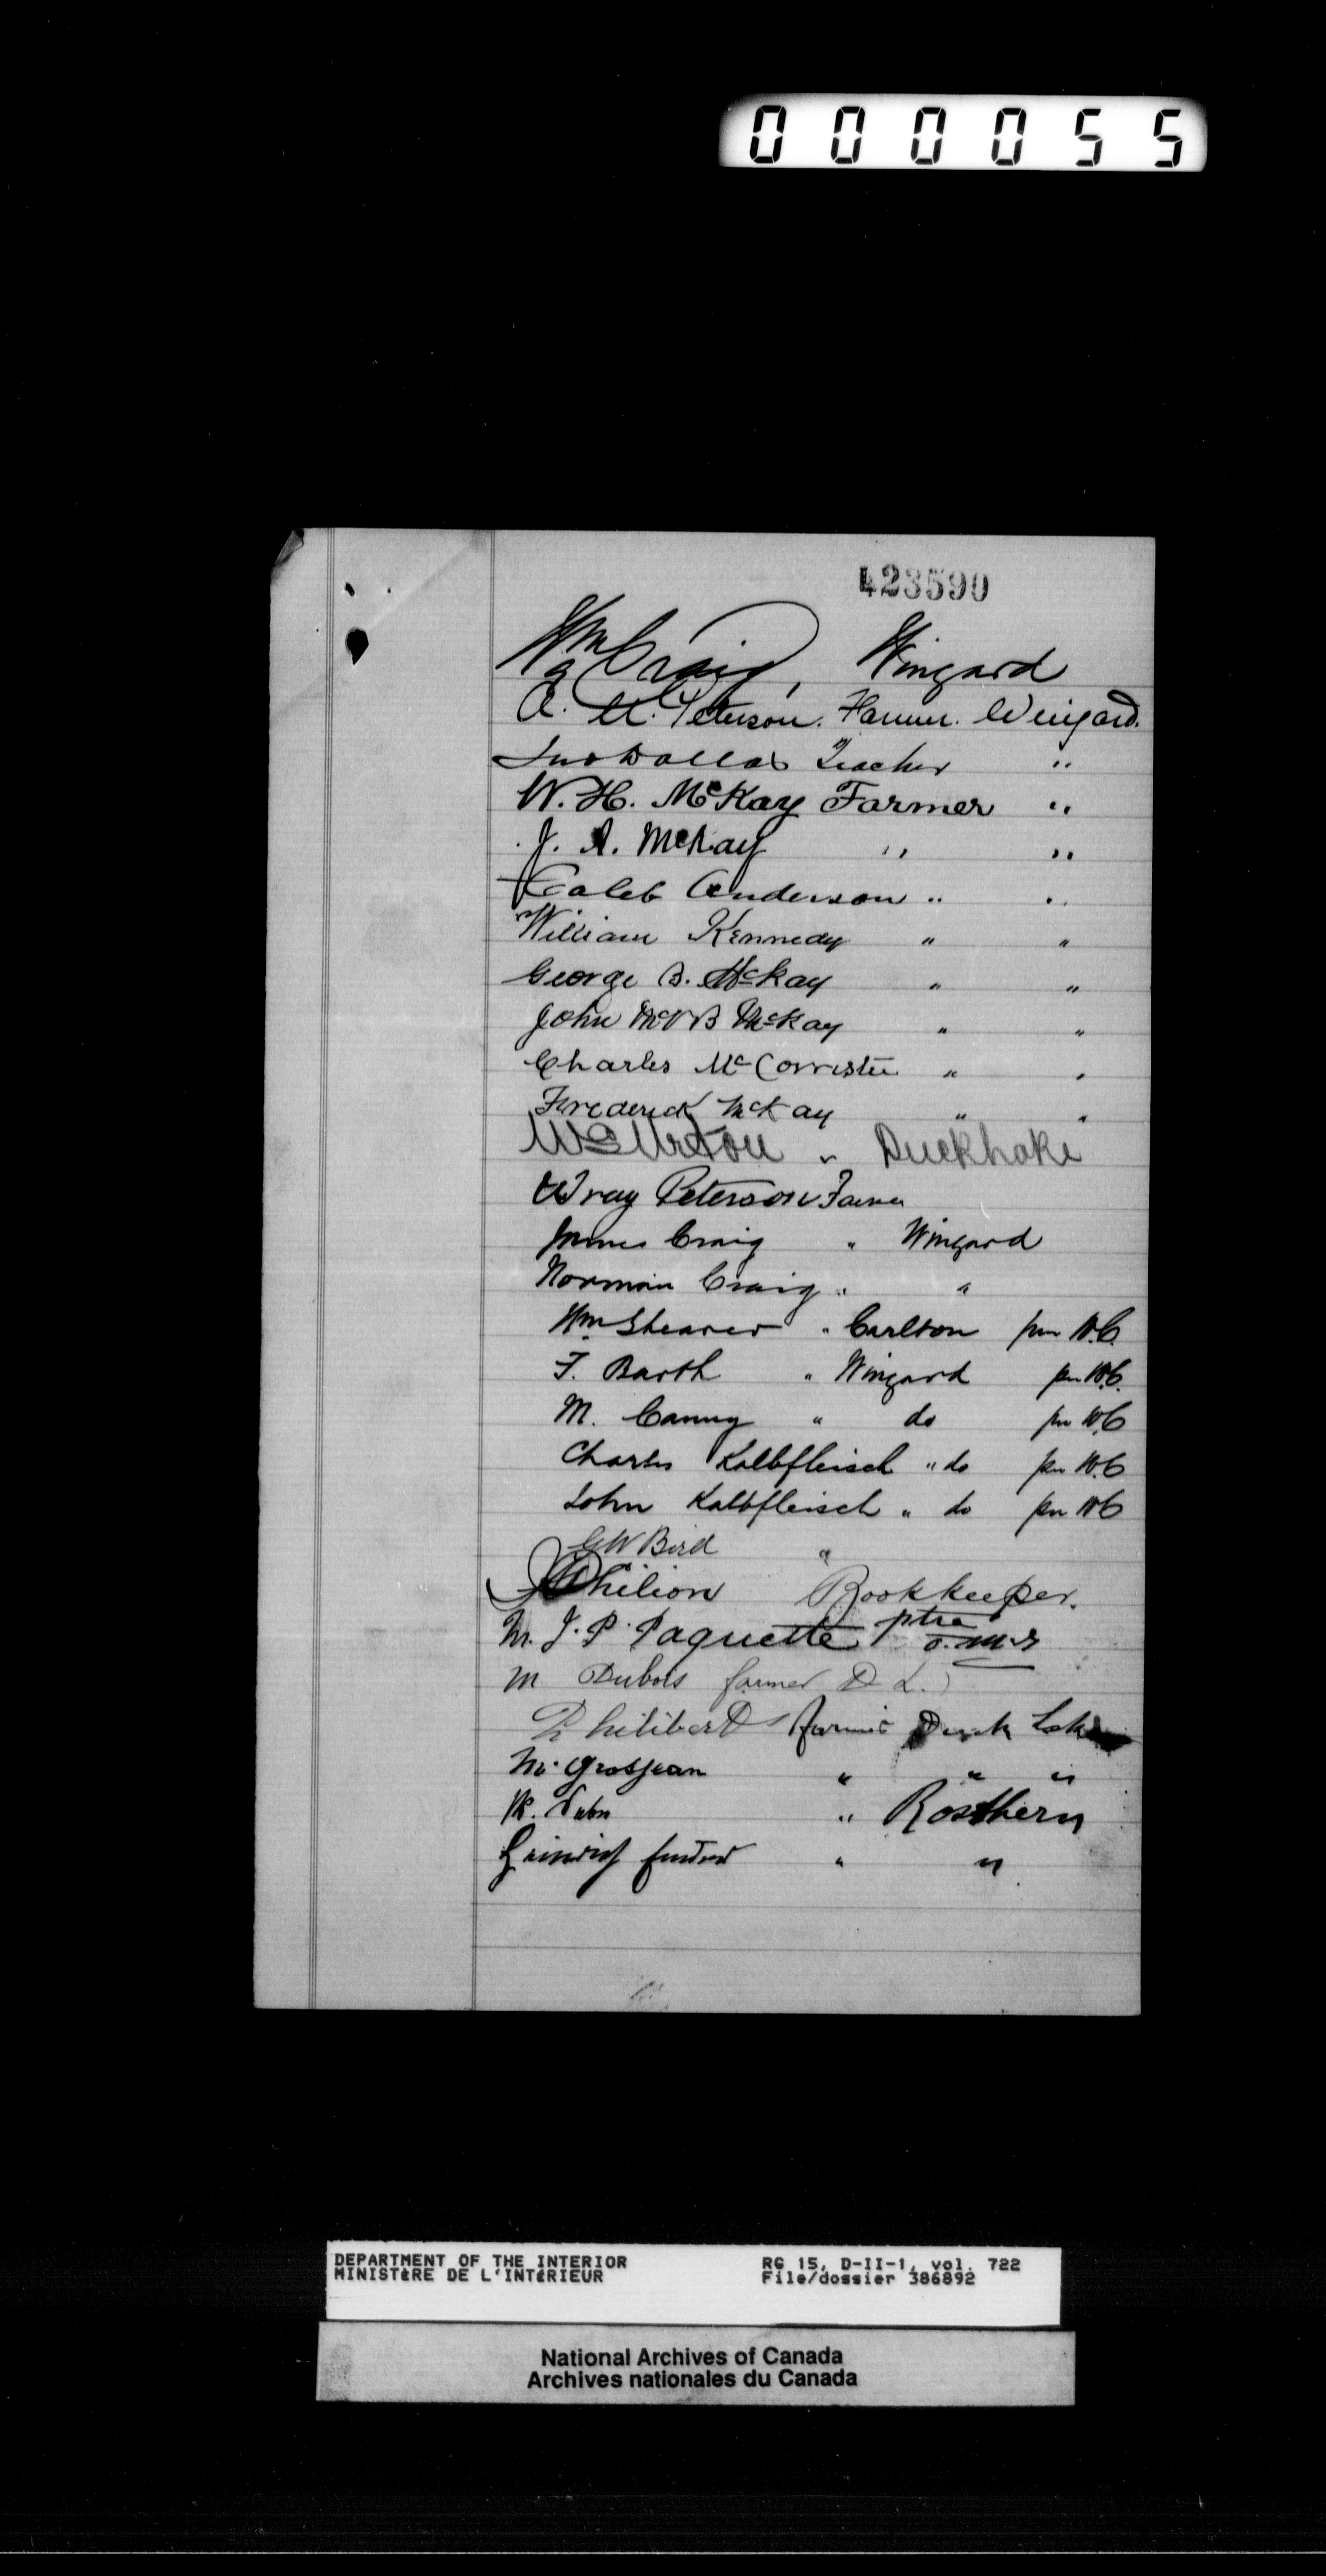 000055
423590
Wm Craig, Wingard
A. U. Peterson. Farmer. Wingard.
Jno Dallas Teacher "
W. H. McKay Farmer "
J. A. McKay " "
Caleb Anderson " "
William Kennedy " "
George B. McKay " "
John McV B McKay " "
Charles McCorrister " "
Frederick McKay " "
" Duckhake
Wray Peterson Farmer
James Craig " Wingard
Norman Craig " "
Wm Shearer " Carlton per W.C.
F. Barth " Wingard per W.C.
M. Canny " do per W.C
Charles Kalbfleisch " do per W.C
John Kalbfleisch " do per WC
G W Bird "
Philion Bookkeeper.
M. J. P. Paquette ptre o.m.i
M Dubois farmer D L.
Philibert farmer Duck Lake
M. Grosjean " " "
" Rosthern
Heinrich " "
DEPARTMENT OF THE INTERIOR RG 15, D-II-1, vol. 722
MINISTèRE DE L'INTéRIEUR File/dossier 386892
National Archives of Canada
Archives nationales du Canada